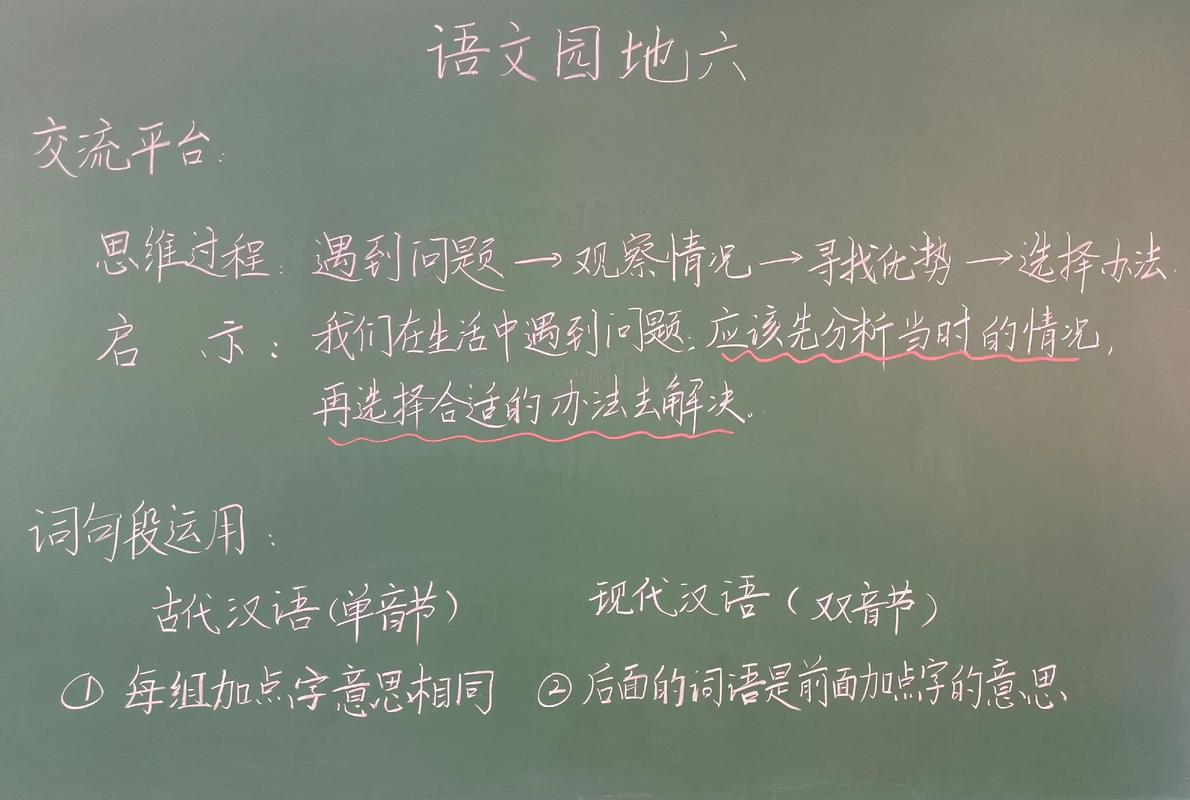 语文园地六
交流平台:
思维过程: 遇到问题→观察情况→寻找优势→选择办法.
启 示: 我们在生活中遇到问题:应该先分析当时的情况,
再选择合适的办法去解决。
词句段运用:
古代汉语(单音节) 现代汉语(双音节)
① 每组加点字意思相同 ② 后面的词语是前面加点字的意思、